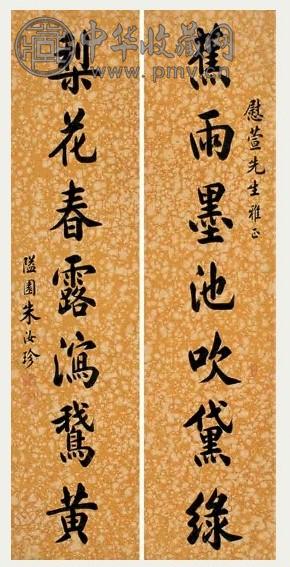 中华收藏网
www.pmv.cn
慰萱先生雅正
蕉雨墨池吹黛綠
梨花春露瀉鵞黄
隘園朱汝珍